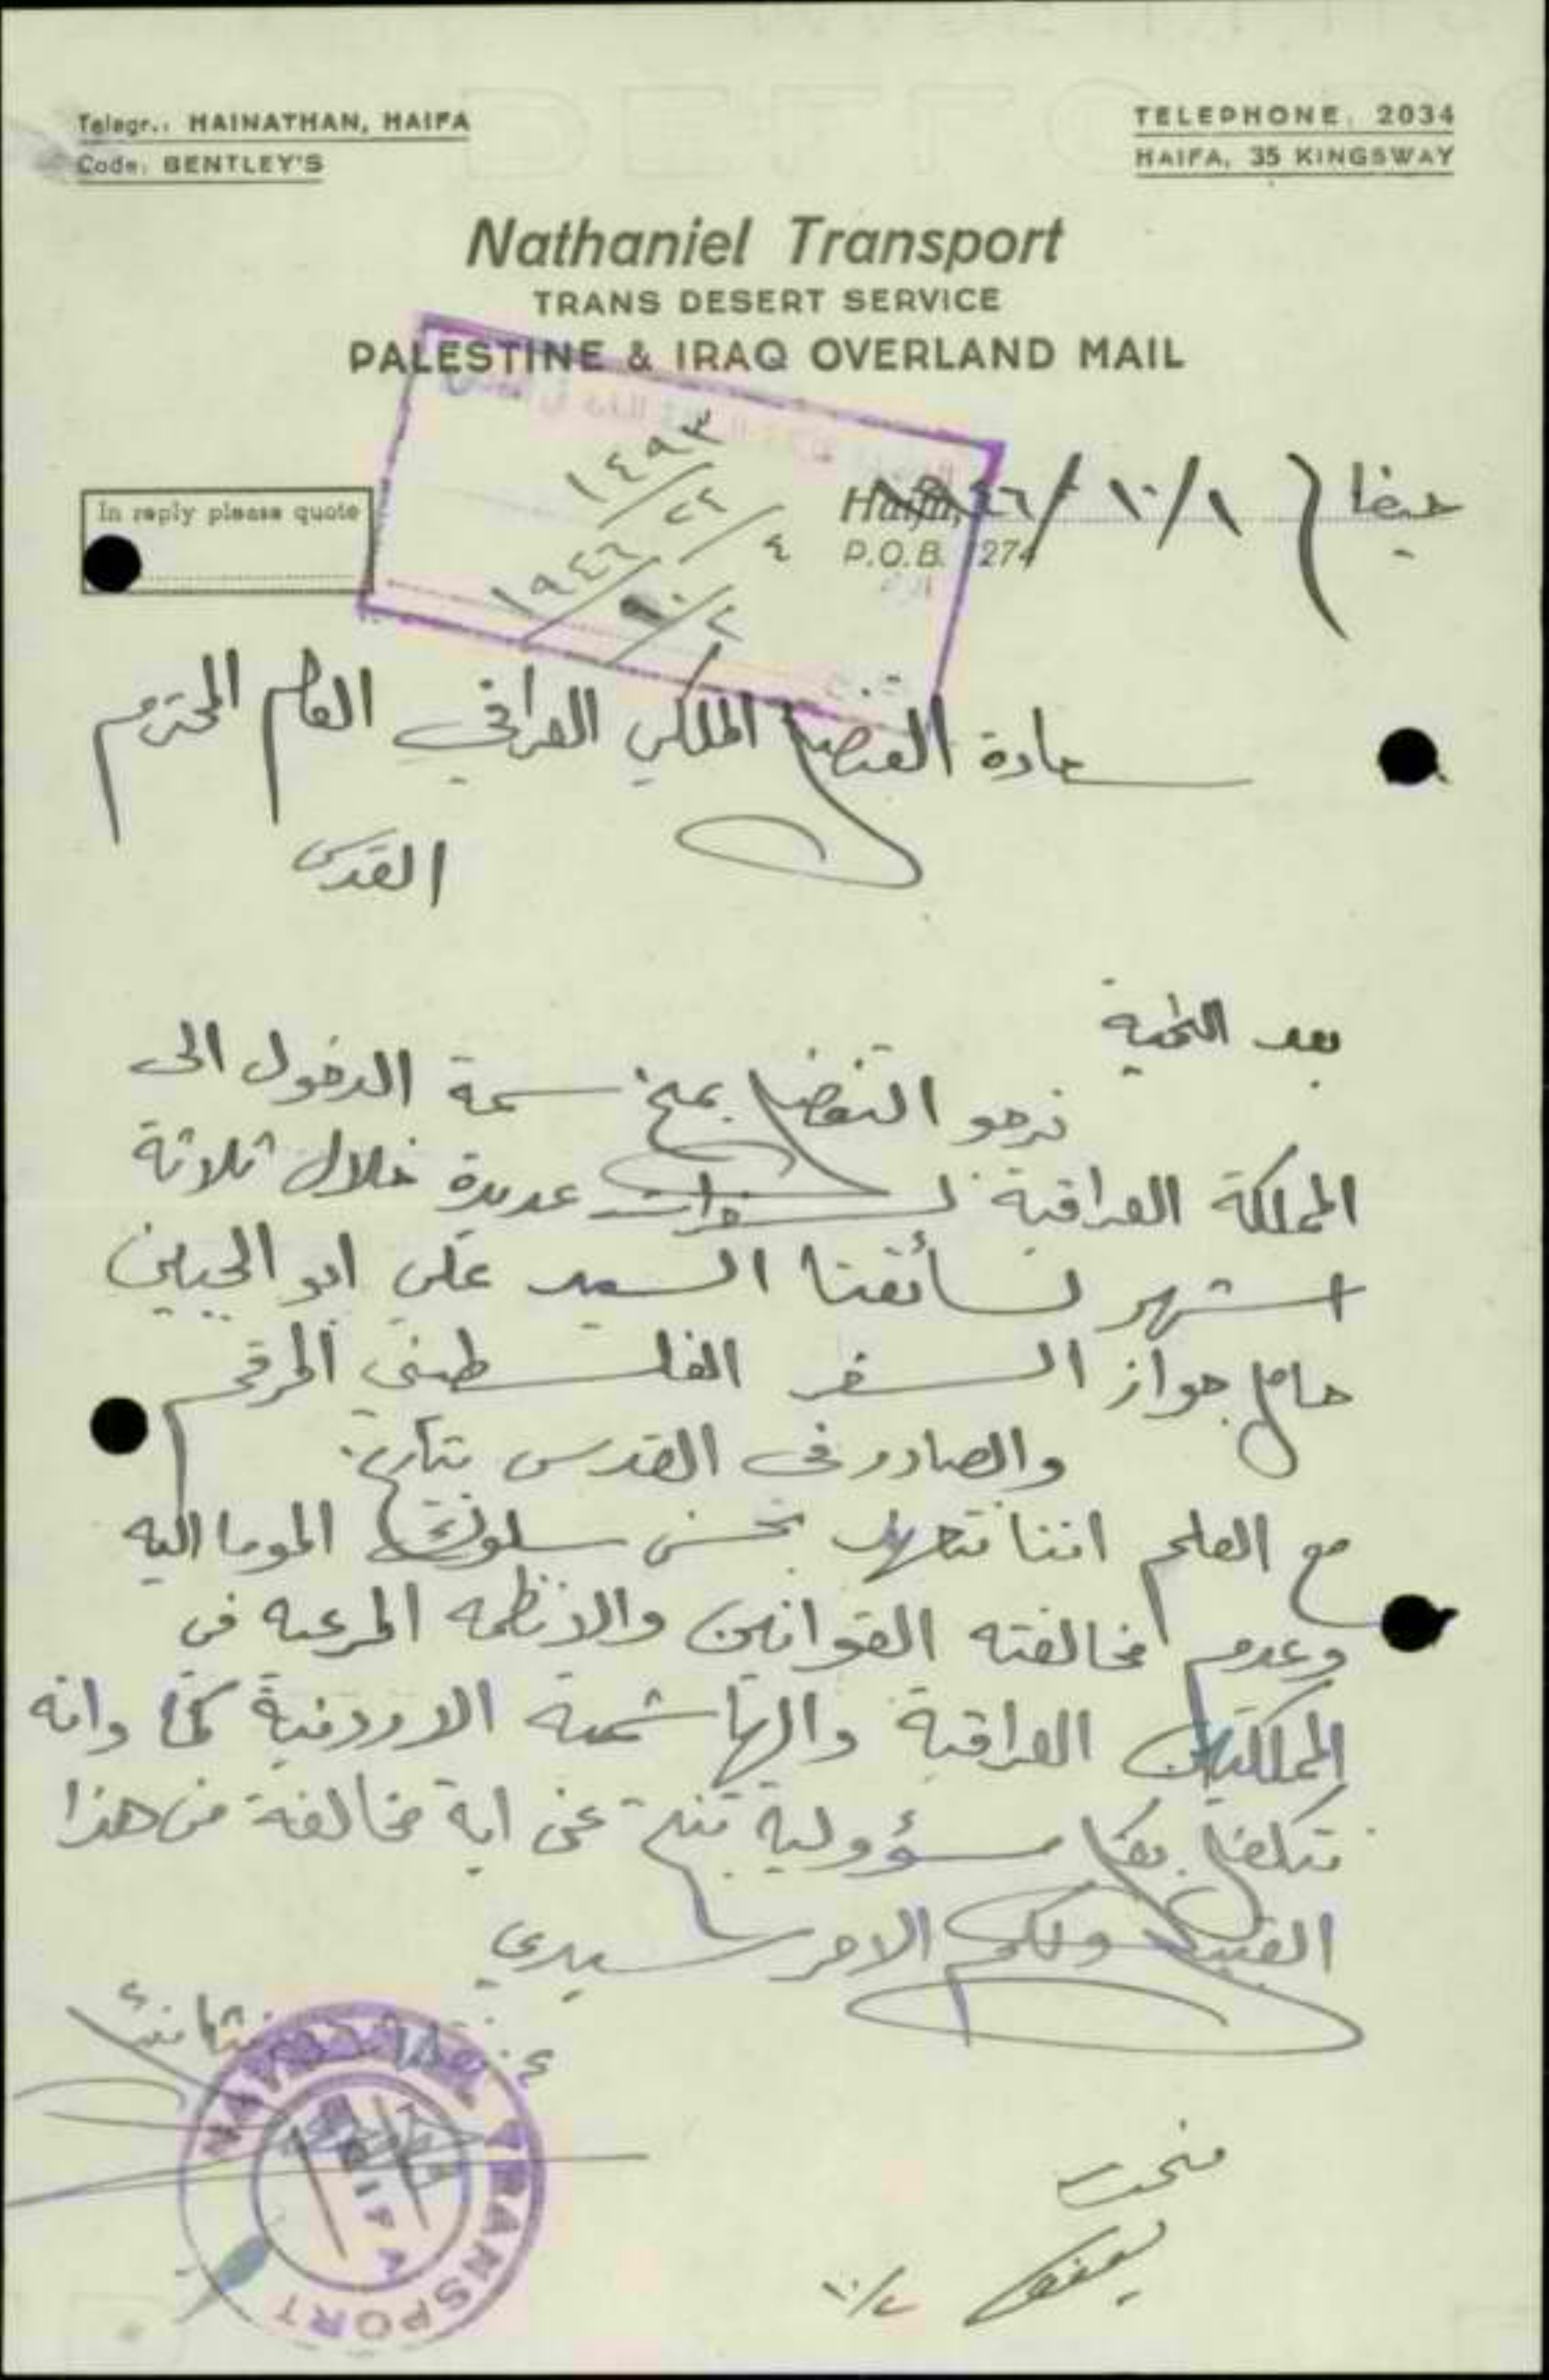 Telegr.: HAINATHAN, HAIFA
Code: BENTLEY'S
TELEPHONE: 2034
HAIFA, 35 KINGSWAY
Nathaniel Transport
TRANS DESERT SERVICE
PALESTINE & IRAQ OVERLAND MAIL
In reply please quote
١٤٩٣
٢٤
٤
١٩٤٦/١٠/٢
Haifa,
P.O.B. 274
حيفا ١/١٠/٤٦
سعادة القنصل الملكي العراقي العام المحترم
القدس
بعد التحية
نرجو التفضل بمنح سمة الدخول الى
المملكة العراقية لسفرات عديدة خلال ثلاثة
اشهر لسائقنا السيد علي ابو الجبين
حامل جواز السفر الفلسطيني المرقم
والصادر في القدس بتاريخ
مع العلم اننا نتعهد بحسن سلوك الموما اليه
وعدم مخالفته القوانين والانظمه المرعيه في
المملكتين العراقية والهاشمية الاردنية كما وانه
نتكفل بكل مسؤولية تنتج عن اية مخالفة من هذا
القبيل ولكم الامر سيدي
NATHANIEL TRANSPORT
HAIFA
منحت
٢/١٠